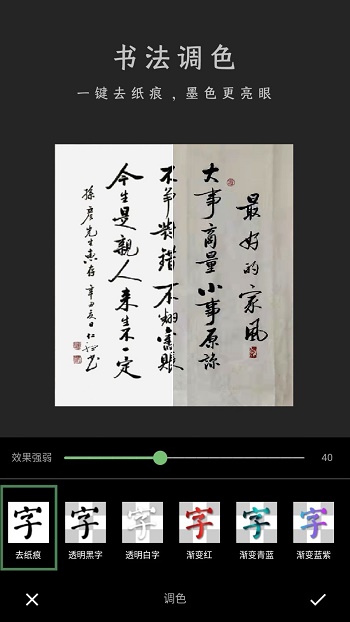 书法调色
一键去纸痕，墨色更亮眼
最好的家风
大事商量小事原谅
不争对错不翻旧账
今生是亲人来生不一定
效果强弱
40
字 字 字 字 字 字
去纸痕 透明黑字 透明白字 渐变红 渐变青蓝 渐变蓝紫
调色